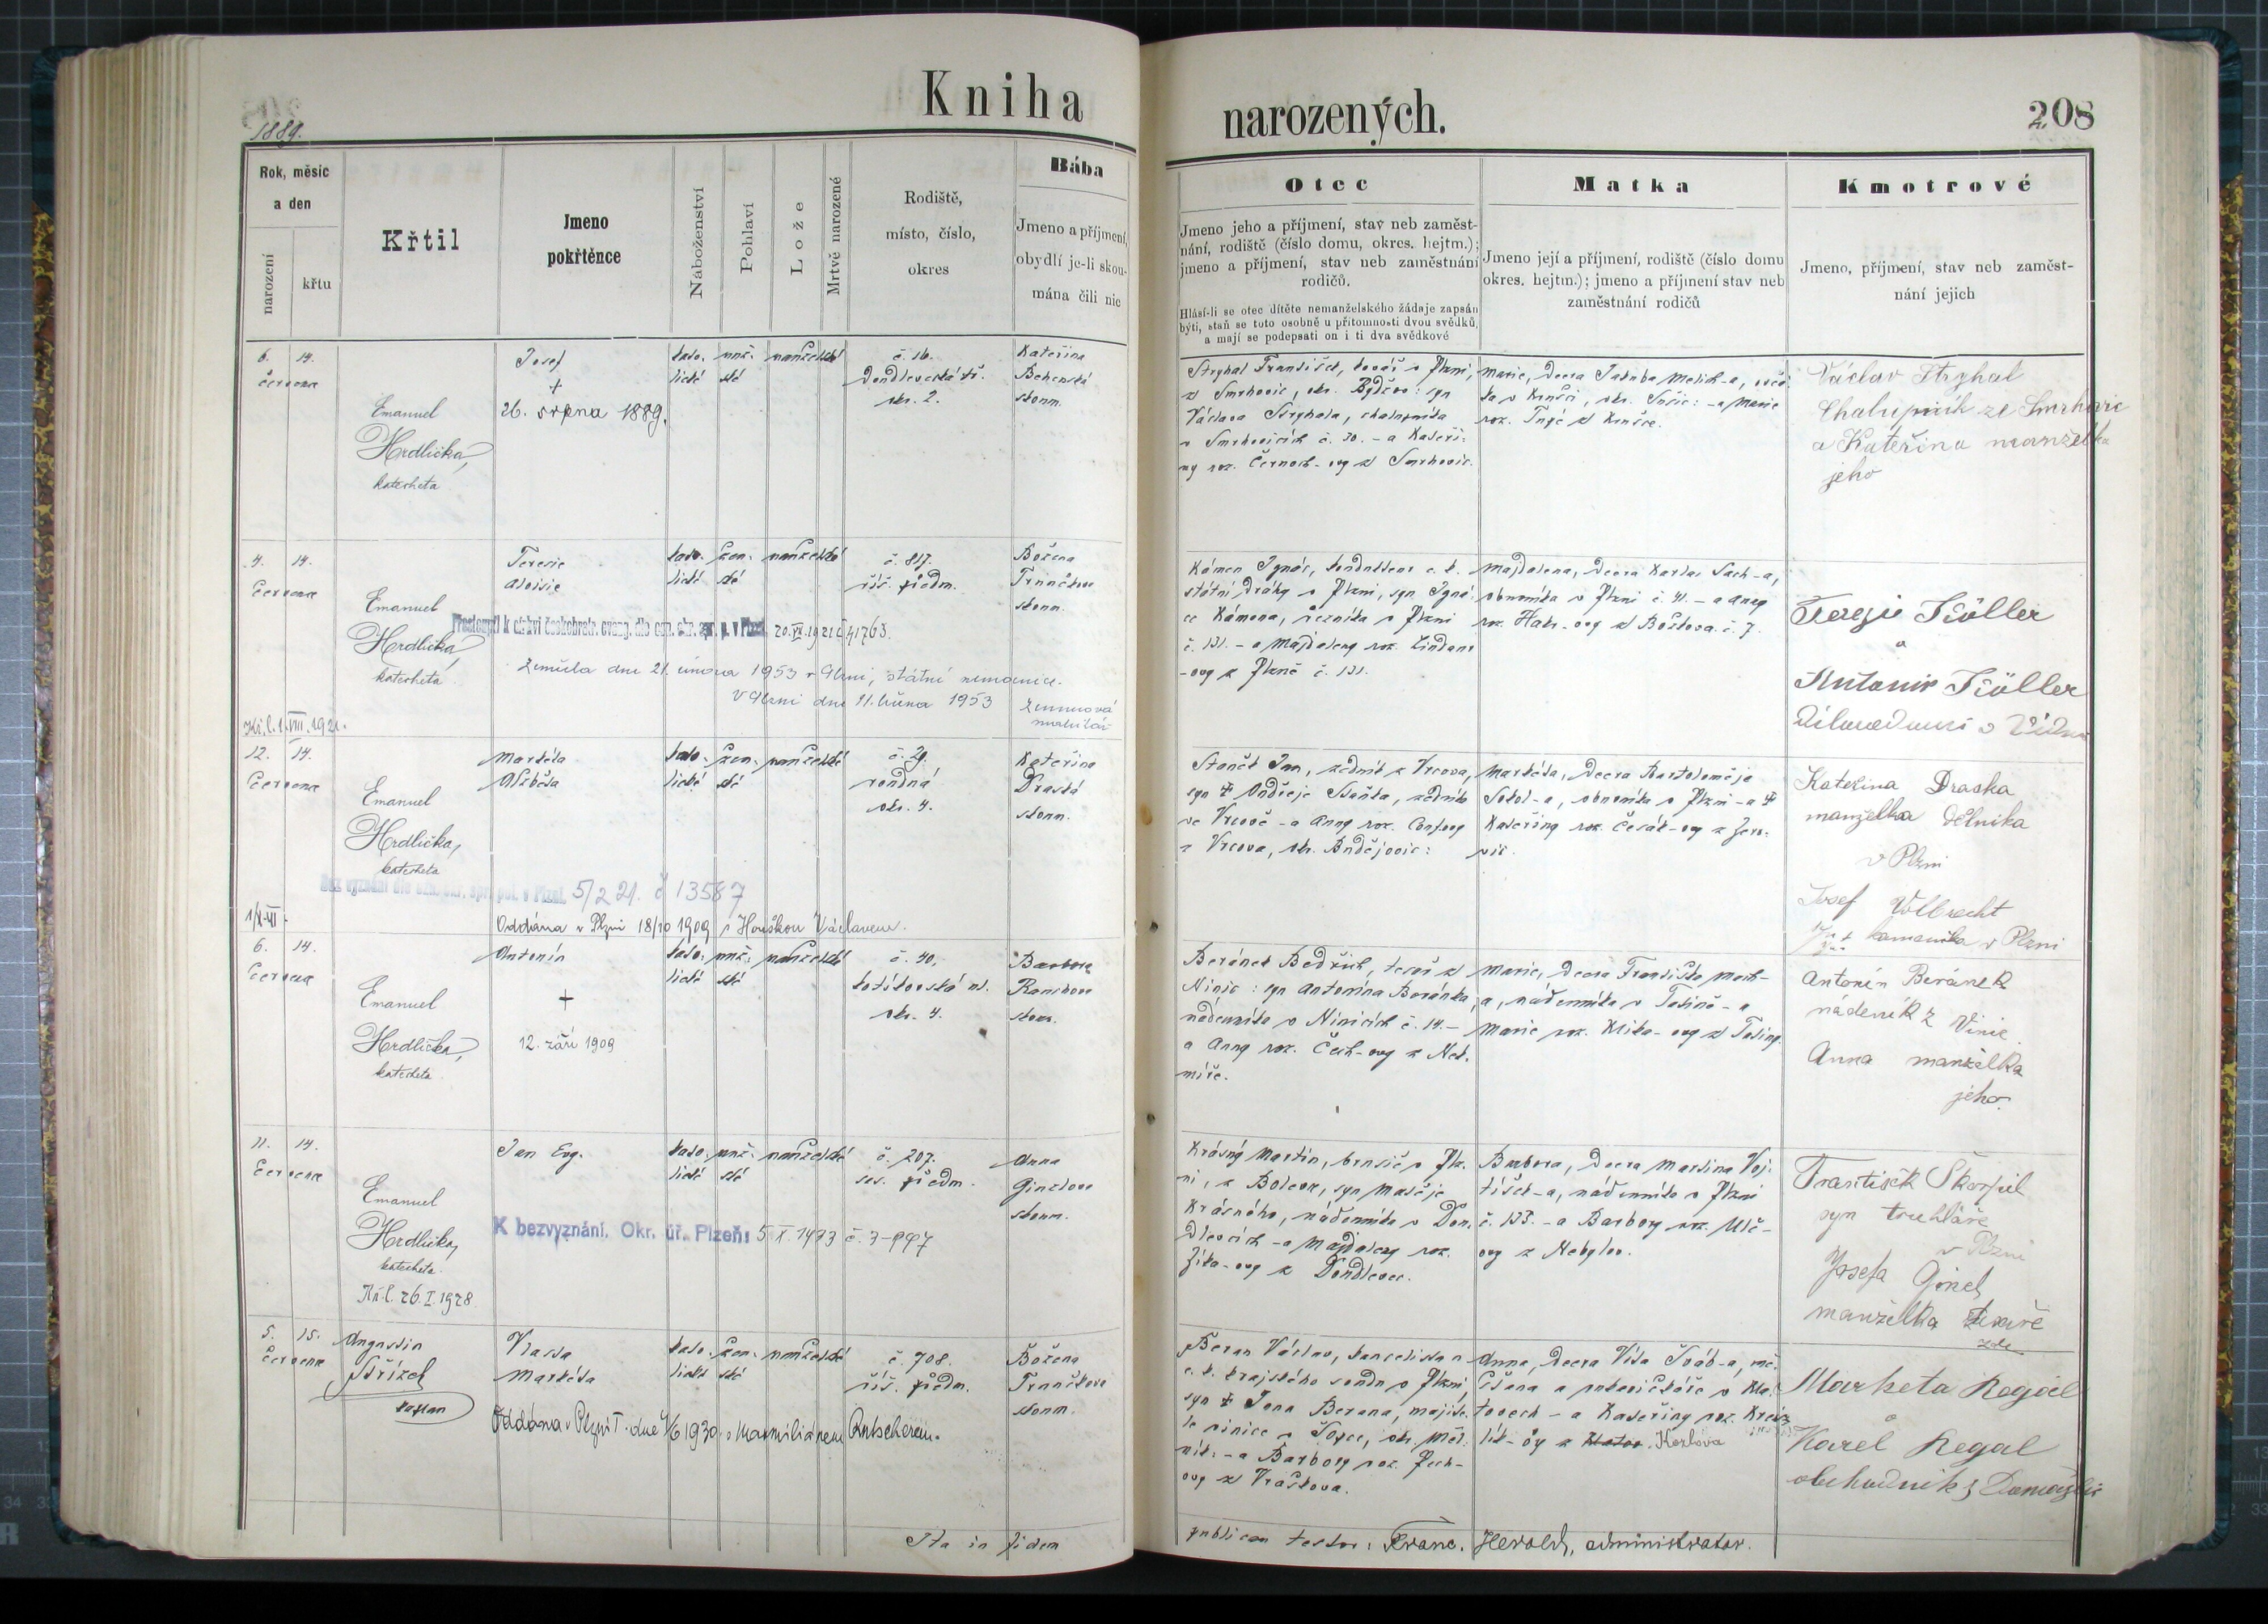 Kniha narozených.
208
1889.
Rok, měsíc a den
narození
křtu
Křtil
Jmeno pokřtěnce
Náboženství
Pohlaví
Lože
Mrtvě narozené
Rodiště,
místo, číslo,
okres
Bába
Jmeno a příjmení,
obydlí je-li skou-
mána čili nic
Otec
Jmeno jeho a příjmení, stav neb zaměst-
nání, rodiště (číslo domu, okres. hejtm.);
jmeno a příjmení, stav neb zaměstnání
rodičů.
Hlásí-li se otec dítěte nemanželského žádaje zapsán
býti, staň se toto osobně u přítomnosti dvou svědků,
a mají se podepsati on i ti dva svědkové
Matka
Jmeno její a příjmení, rodiště (číslo domu
okres. hejtm.); jmeno a příjmení stav neb
zaměstnání rodičů
Kmotrové
Jmeno, příjmení, stav neb zaměst-
nání jejich
6. 14.
Července
Emanuel
Hrdlička,
katecheta
Josef
+
26. srpna 1889.
kato- muž- manželské
lické ské
č. 16.
Doudlevecká tř.
okr. 2.
Kateřina
Behenská
zkoum.
Stryhal František, kovář v Plzni,
z Smrkovic, okr. Bydžov: syn
Václava Stryhala, chalupníka
v Smrkovicích č. 30. - a Kateři-
ny roz. Černoch-ovy z Smrkovic.
Marie, dcera Jakuba
roz.
Václav Stryhal
Chalupník ze Smrkovic
a Kateřina manželka
jeho
4. 14.
Července
Emanuel
Hrdlička,
katecheta
Terezie
Aloisie
kato- žen- manželské
lické ské
č. 817.
říš. předm.
Božena
Trnečkova
zkoum.
Přestoupil k církvi českobratr. evang. dle ozn. okr. spr. p. v Plzni 20.VI.1921 č 41763.
Zemřela dne 21. února 1953 v Plzni, státní nemocnice.
V Plzni dne 11. března 1953
Kř. l. 1.VIII.1921.
Kámen Ignác, konduktor c. k.
státní dráhy v Plzni, syn Igná-
ce Kámena, řezníka v Plzni
č. 131. - a Majdaleny roz. Lindau
-ovy z Plzně č. 131.
Majdalena, dcera Karla Sach-a,
obuvníka v Plzni č. 41. - a Anny
roz. Hahn-ovy z Božkova č. 7.
Terezie Köller
a
Antonie Köller
12. 14.
Července
Emanuel
Hrdlička,
katecheta
Markéta
Alžběta
kato- žen- manželské
lické ské
č. 29.
rondná
okr. 4.
Kateřina
Draská
zkoum.
Bez vyznání dle ozn. okr. spr. pol. v Plzni, 5/2 21. č 13587
Oddána v Plzni 18/10 1909 s Houškou Václavem.
Staněk Jan, zedník z Vrcova,
syn † Ondřeje Staňka, zedníka
ve Vrcově - a Anny roz.
z Vrcova, okr. Budějovic:
Markéta, dcera Bartoloměje
Sokol-a, obuvníka v Plzni - a †
Kateřiny roz. Česák-ovy z
Kateřina Draska
manželka dělníka
v Plzni
Josef Wolbrecht
kameníka v Plzni
6. 14.
Července
Emanuel
Hrdlička,
katecheta
Antonín
+
12. září 1909
kato- muž- manželské
lické ské
č. 40.
kotíkovská ul.
okr. 4.
Barbora
zkoum.
Beránek Bedřich, tesař z
Vinic: syn Antonína Beránka,
nádenníka v Vinicích č. 14. -
a Anny roz. Čech-ovy z Nek-
míře.
Marie, dcera Františka Mach-
a, nádenníka v Tatině - a
Marie roz. Klika-ovy z Tatiny.
Antonín Beránek
nádeník z Vinic
Anna manželka
jeho
11. 14.
Července
Emanuel
Hrdlička,
katecheta
Kř. l. 26.I.1928.
Jan Evg.
kato- muž- manželské
lické ské
č. 207.
sev. předm.
Anna
Ginzlova
zkoum.
K bezvyznání. Okr. úř. Plzeň: 5.X.1923 č. 3-997
Krásný Martin, brusič v Plz-
ni, z Bolevce, syn Matěje
Krásného, nádenníka v Dou-
dlevcích - a Majdaleny roz.
Zika-ovy z Doudlevec.
Barbora, dcera Martina Voj-
tíšek-a, nádenníka v Plzni
č. 133. - a Barbory roz. Ulč-
ovy z Nebylov.
František Škorpil
syn truhláře
v Plzni
Josefa Ginzl
manželka
zde
5. 15.
Července
Augustin
Střízek
kaplan
Vlasta
Markéta
kato- žen- manželské
lické ské
č. 708.
říš. předm.
Božena
Trnečkova
zkoum.
Oddána v Plzni I. dne 4/6 1930 s Maxmiliánem Rutscherem.
Beran Václav, kancelista u
c. k. krajského soudu v Plzni,
syn † Jana Berana, majite-
le vinice v Šopce, okr. Měl-
ník: - a Barbory roz. Pech-
ovy z Vraňkova.
Anna, dcera Víta Šváb-a, mě-
šťana a rukavičkáře v Kla-
tovech - a Kateřiny roz.
Kozlova
Marketa Regal
Karel Regal
obchodník z Domažlic
Ita in fidem publicam testor: Franc. Herold, administrator.